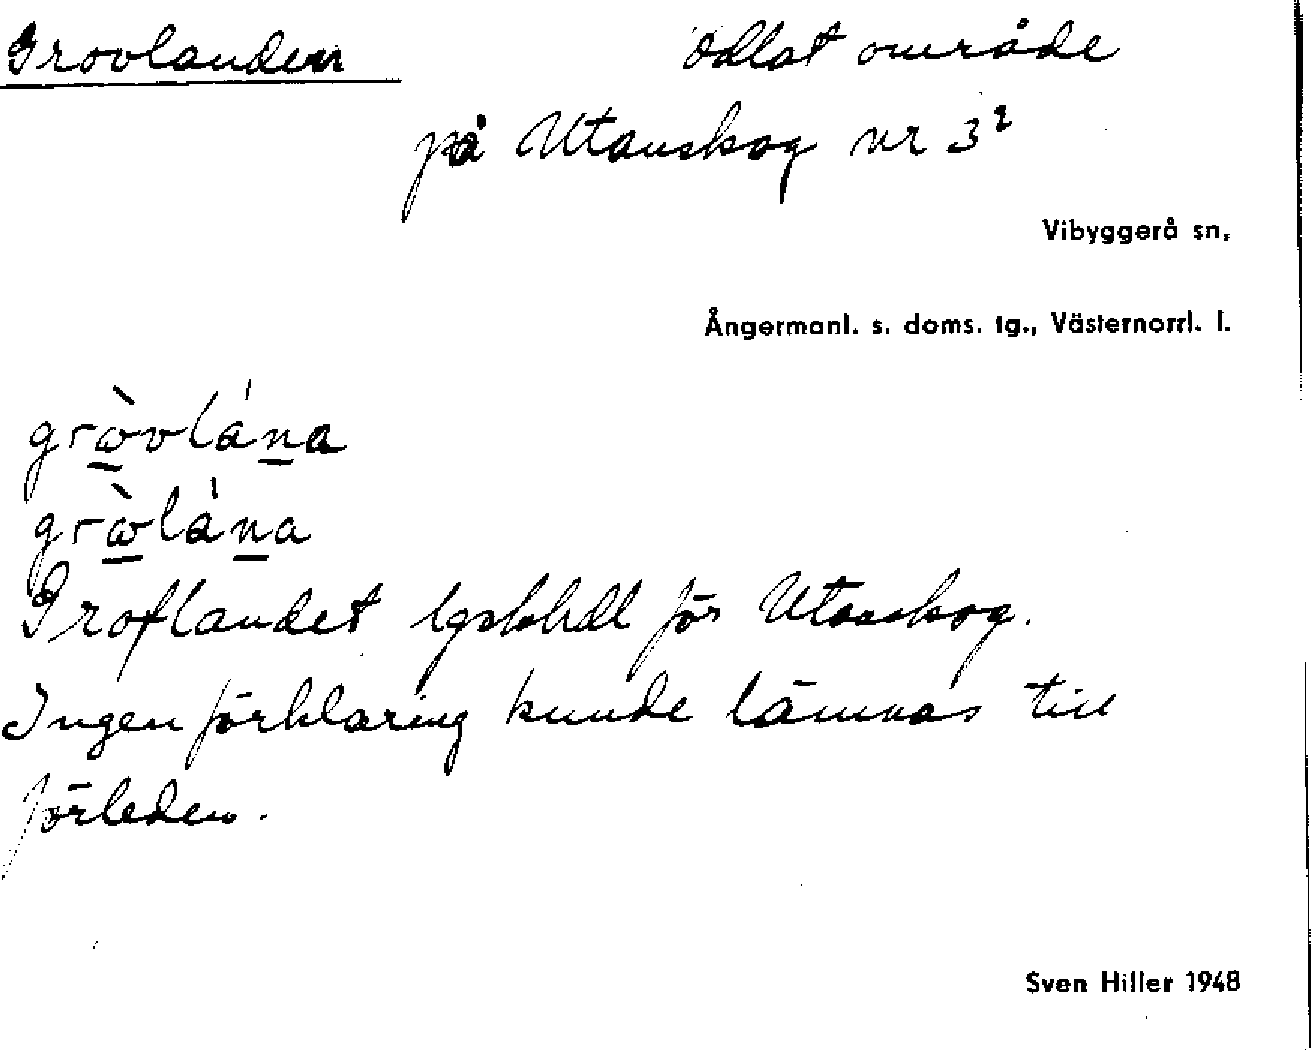 Grovlanden Odlat område
på Utanskog nr 3²
Vibyggerå sn.
Ångermanl. s. doms. tg., Västernorrl. l.
gròvlána
gròlána
Groflandet lgskhdl för Utanskog.
Ingen förklaring kunde lämnas till
förleden.
Sven Hiller 1948